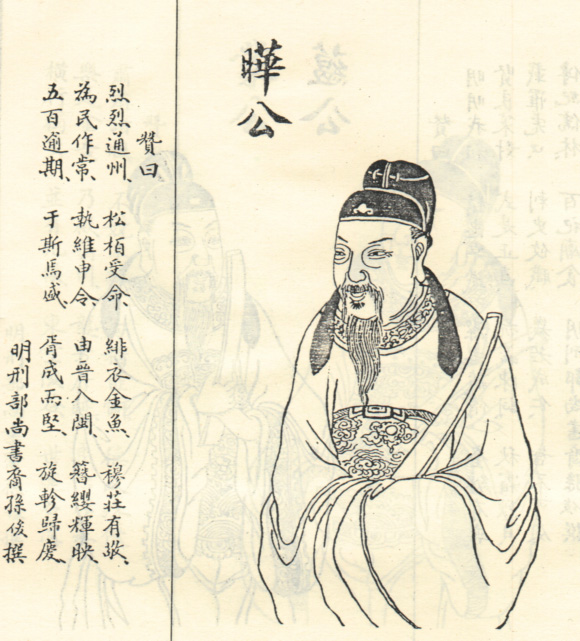 曄公
贊曰
烈烈通州、松柏受命、緋衣金魚、穆莊有敬、
為民作常、執維申令、由晉入閩、簪纓輝映、
五百逾期、于斯馬盛、胥成而堅、旋軫歸慶、
明刑部尚書裔孫俊撰